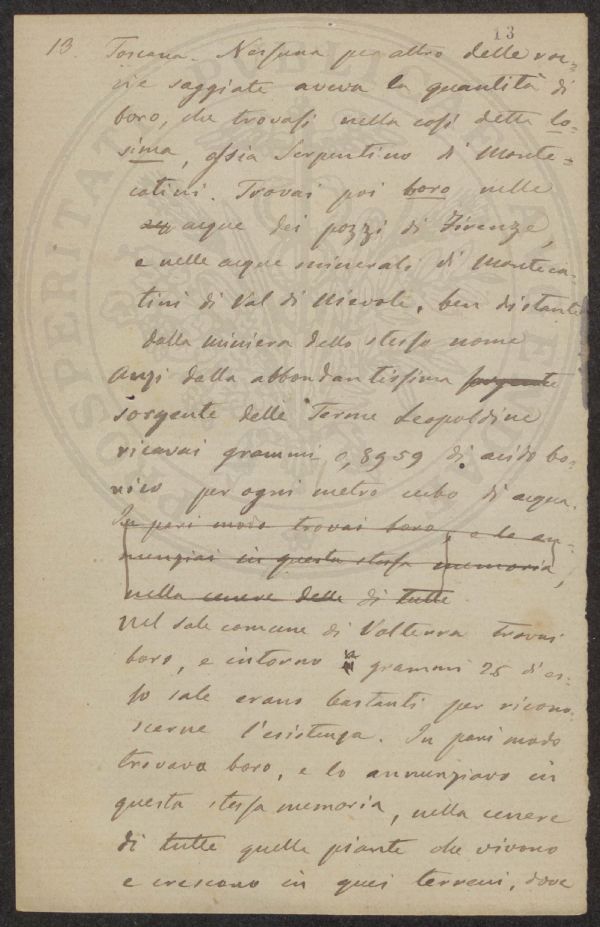 13
13
Toscana. Nessuna per altro delle roc=
cie saggiate aveva la quantità di
boro, che trovasi nella così detta lo=
sima, ossia Serpentino di Monte=
catini. Trovai poi boro nelle
acque dei pozzi di Firenze,
e nelle acque minerali di Monteca=
tini di Val di Nievole, ben distanti
dalla miniera dello stesso nome
Anzi dalla abbondantissima sorgente
sorgente delle Terme Leopoldine
ricavai grammi 0,8959 di acido bo=
rico per ogni metro cubo di acqua.
In pari modo trovai boro, e lo an=
nunziai in questa stessa memoria,
nella cenere delle di tutte
Nel sale comune di Volterra trovai
boro, e intorno a grammi 25 di es=
so sale erano bastanti per ricono=
scerne l'esistenza. In pari modo
trovava boro, e lo annunziavo in
questa stessa memoria, nella cenere
di tutte quelle piante che vivono
e crescono in quei terreni, dove
PROSPERITATI PUBLICAE AUGENDAE